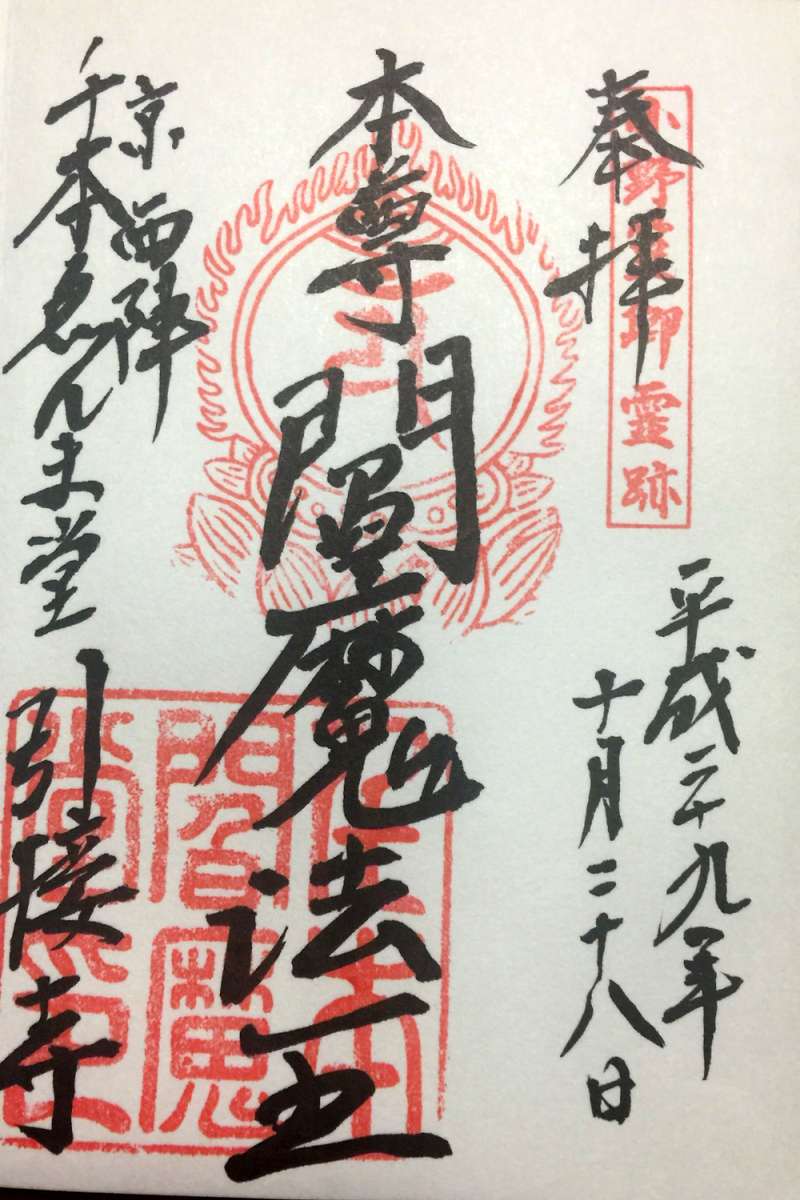 奉拝
小野篁卿霊跡
平成二十九年
十月二十八日
本尊
閻魔法王
京西陣
千本ゑんま堂
引接寺